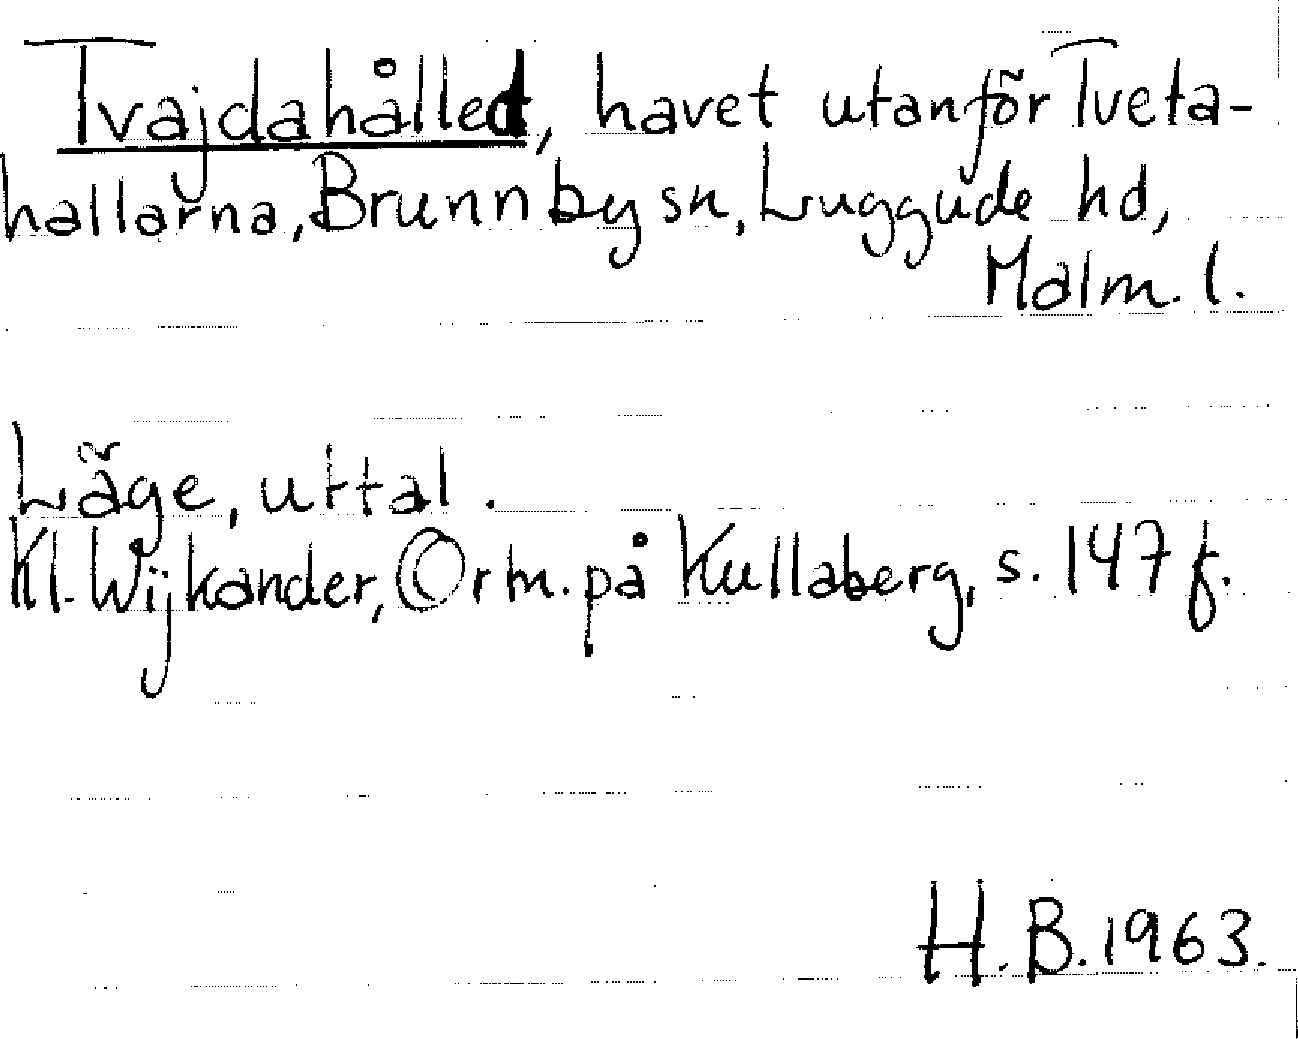 Tvajdahålled, havet utanför Tveta-
hallarna, Brunnby sn, Luggude hd,
Malm. l.
Läge, uttal.
Kl. Wijkander, Ortn. på Kullaberg, s. 147 f.
H. B. 1963.